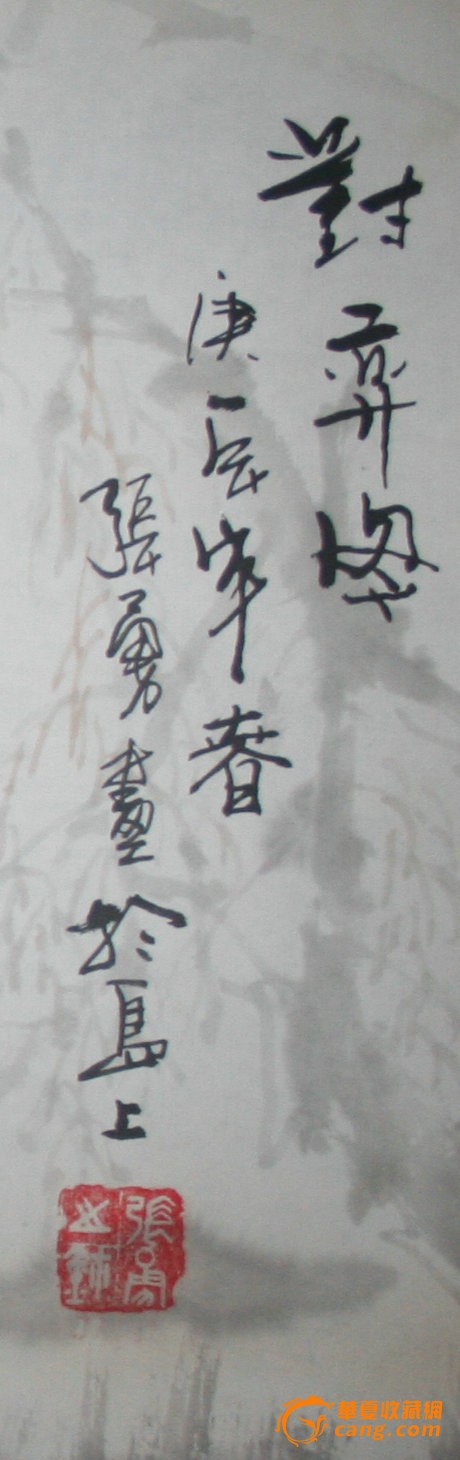 對弈图
庚辰年春
張勇畫於島上
張勇
之鉥
華夏收藏網
cang.com